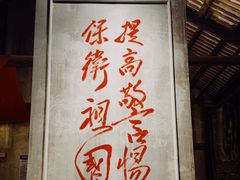 提高警惕
保衛祖國